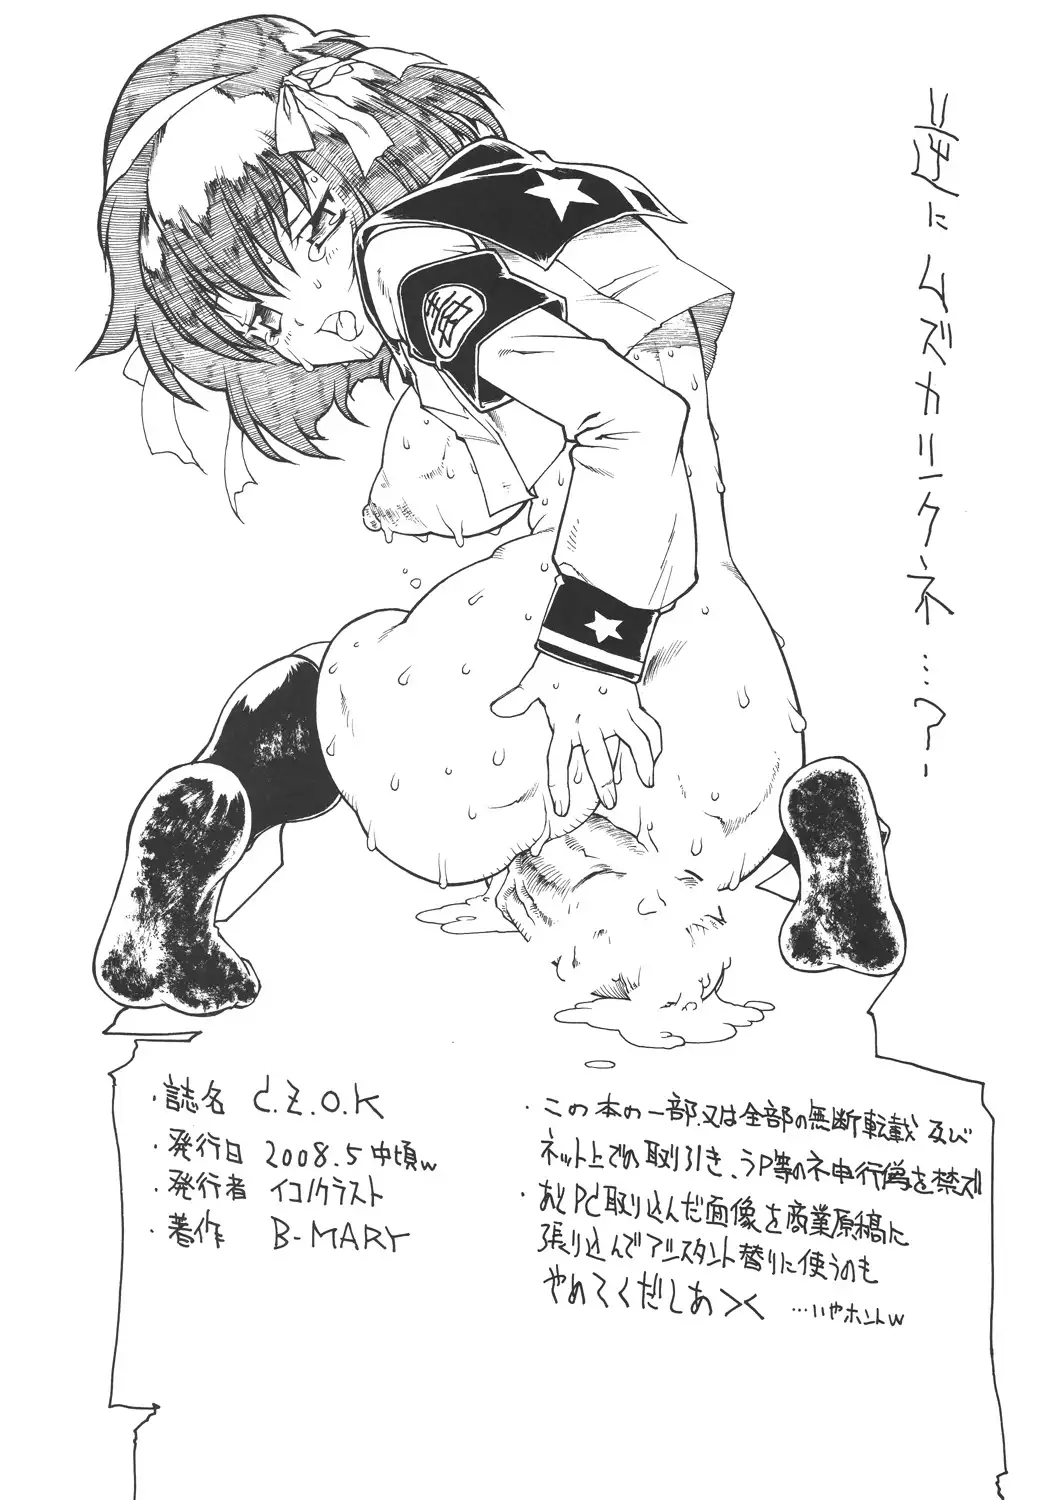 逆にムズカリクネ…?
・誌名 C.Z.O.K
・発行日 2008.5中頃w
・発行者 イコノクラスト
・著作 B-MARY
・この本の一部.又は全部の無断転載 及び
ネット上での取り引き、うP等のネ申行僞を禁ズ
・あとPCに取り込んだ画像を商業原稿に
張り込んでアシスタント替りに使うのも
やめてくだしあ><  …いやホントw